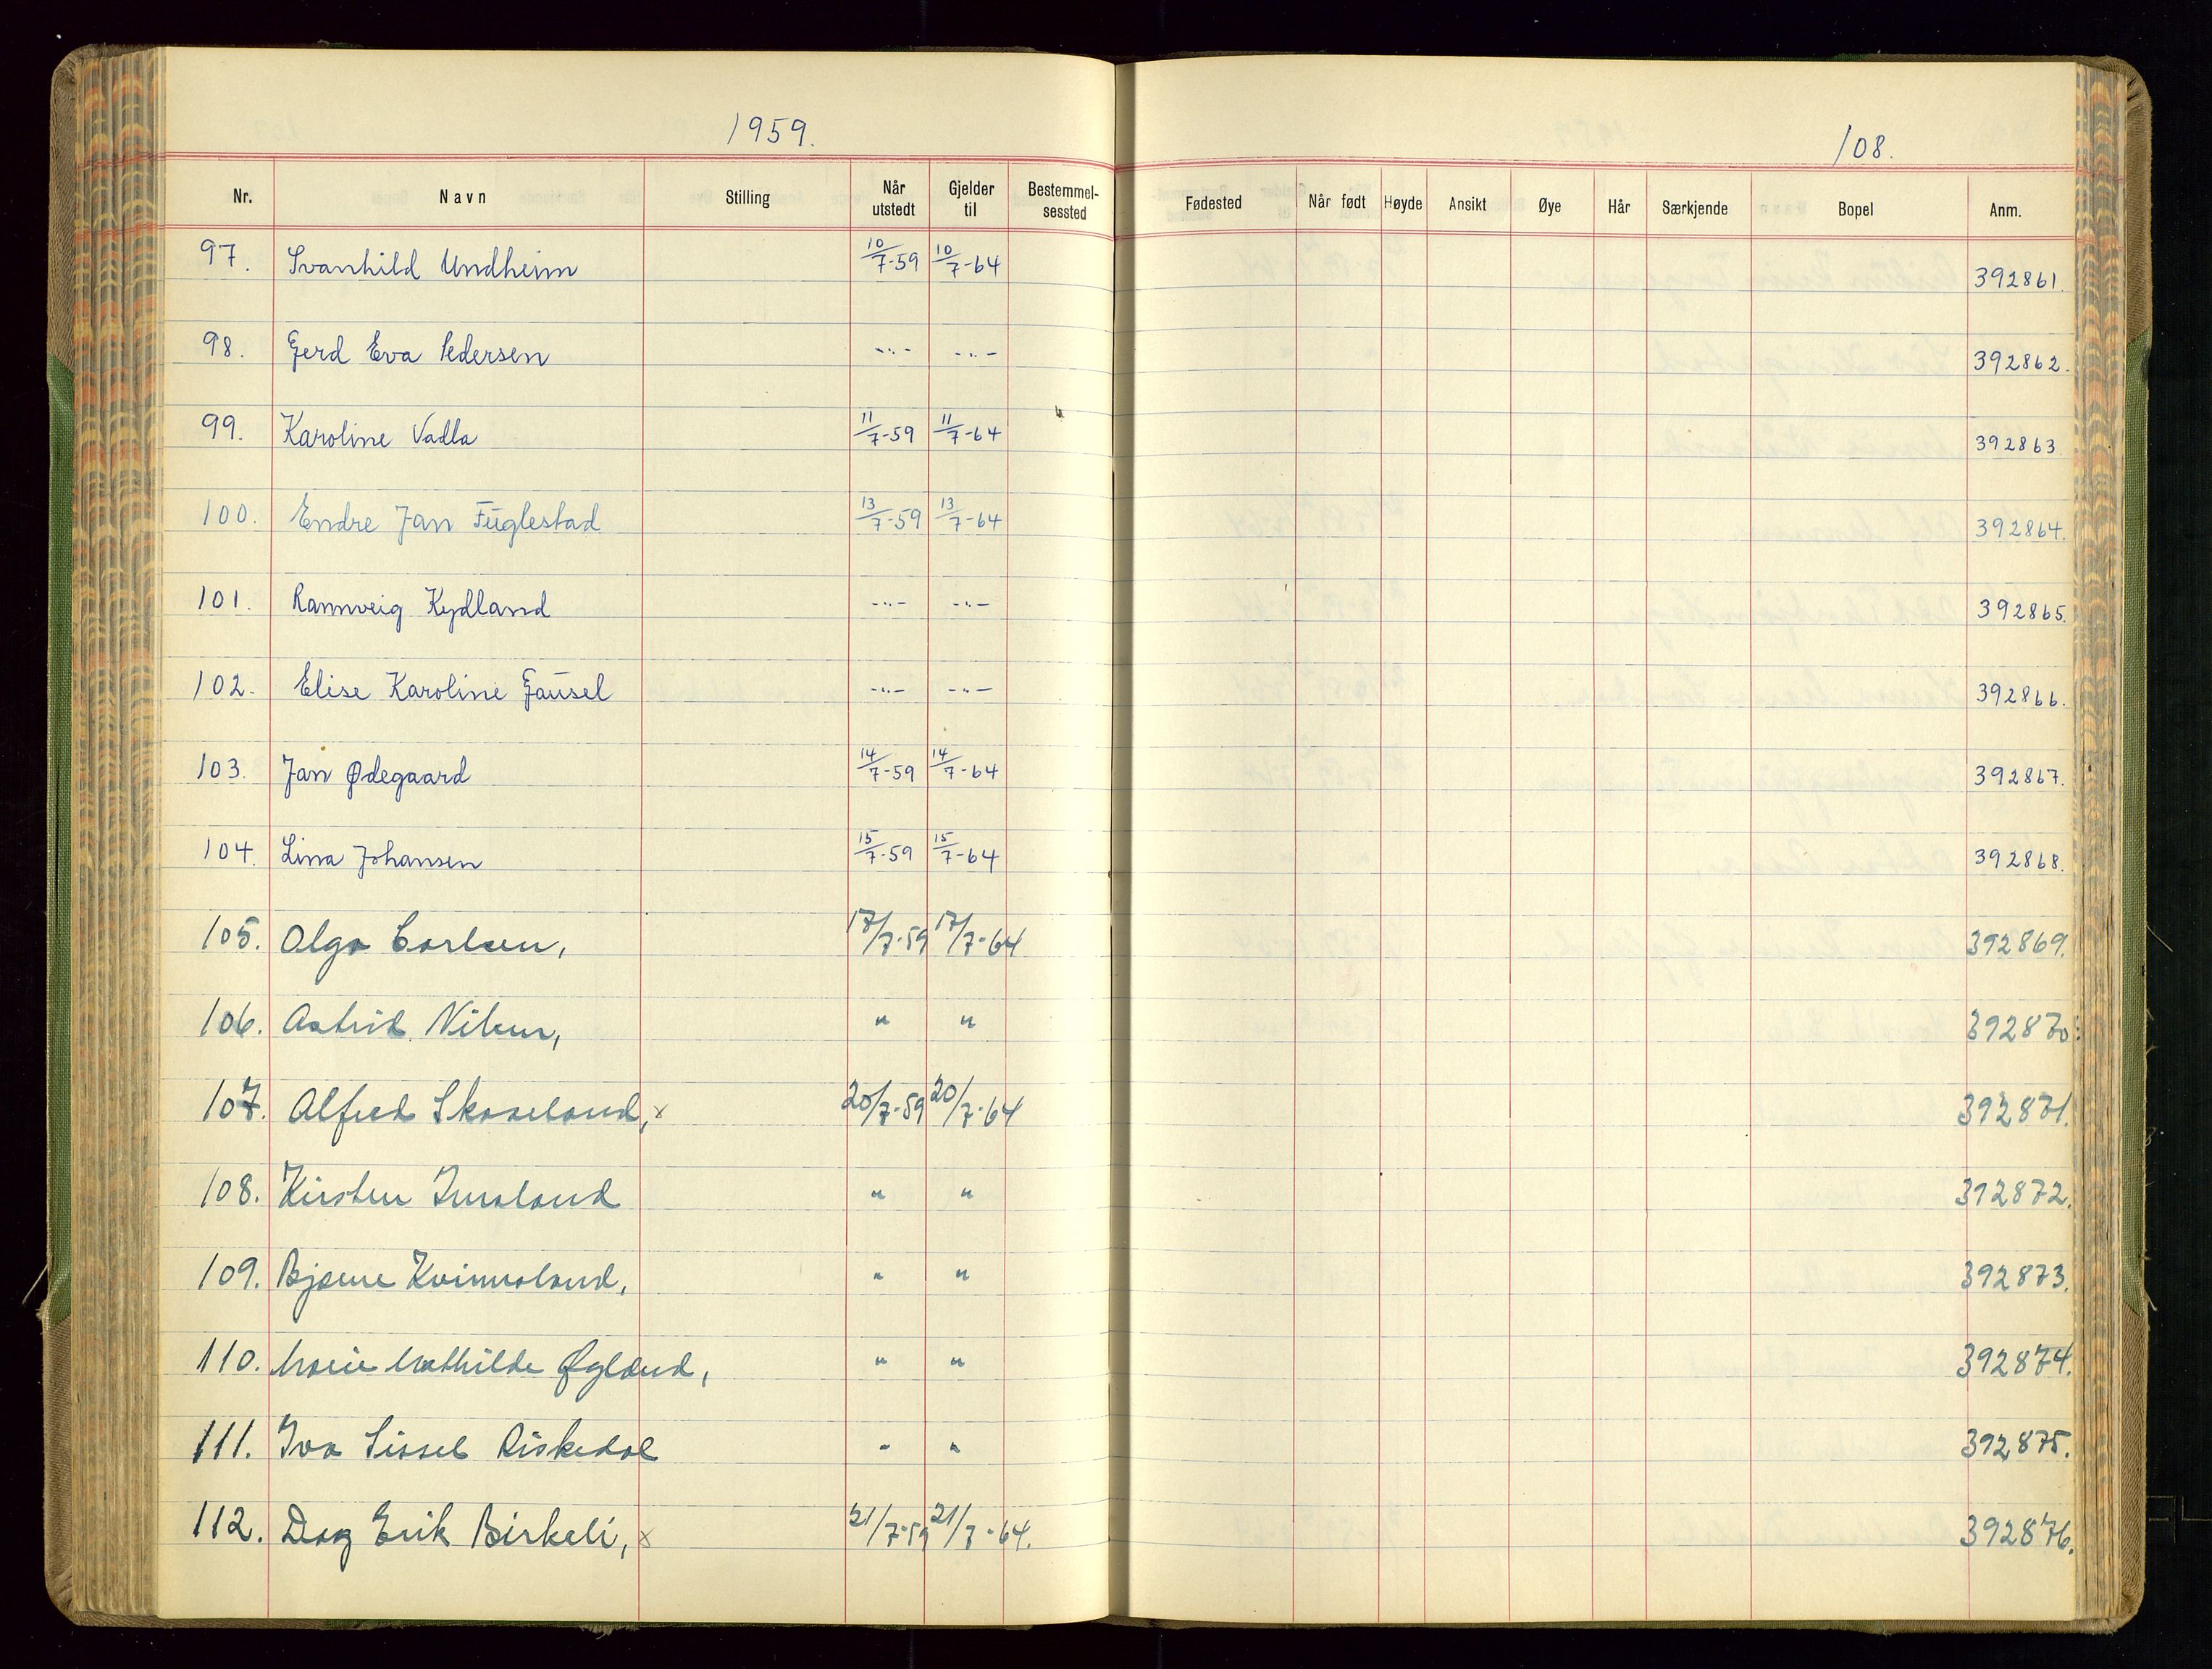 1959.
108.
Nr. Navn Stilling Når utstedt Gjelder til Bestemmel-sessted Fødested Når født Høyde Ansikt Øye Hår Særkjende Bopel Anm.
97. Svanhild Undheim 10/7-59 10/7-64 392861.
98. Gerd Eva Pedersen -"- -"- 392862.
99. Karoline Vadla 11/7-59 11/7-64 392863
100. Endre Jan Fuglestad 13/7-59 13/7-64 392864.
101. Rannveig Kydland -"- -"- 392865.
102. Elise Karoline Gausel -"- -"- 392866.
103. Jan Ødegaard 14/7-59 14/7-64 392867.
104. Lina Johansen 15/7-59 15/7-64 392868.
105. Olga Carlsen, 17/7-59 17/7-64 392869.
106. Astrid Nilsen, " " 392870.
107. Alfred Skaseland, x 20/7-59 20/7-64 392871.
108. Kirsten Imsland " " 392872.
109. Bjarne Kvinnsland, " " 392873.
110. Marie Mathilde Øgland, " " 392874.
111. Iva Sissel Riskedal " " 392875.
112. Dag Erik Birkeli, x 21/7-59 21/7-64. 392876.